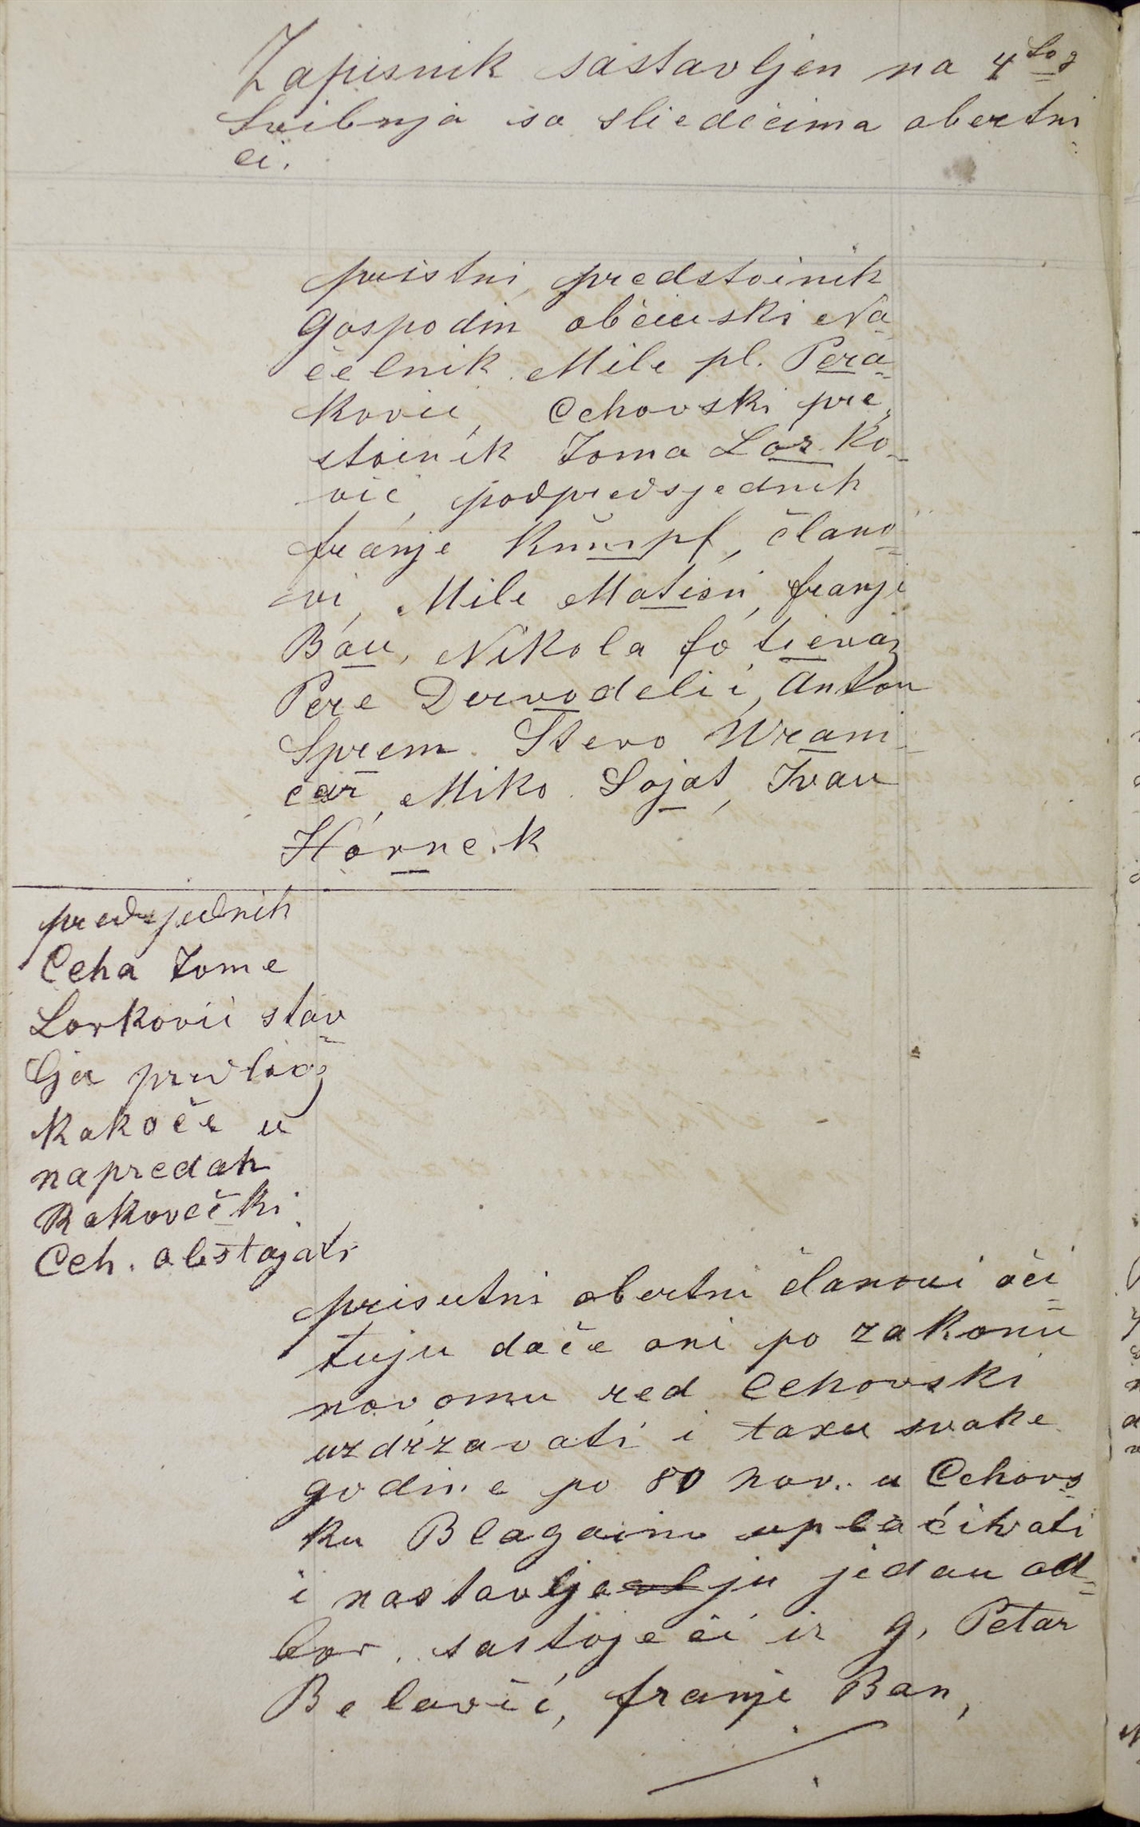 Zapisnik sastavljen na 4tog
Svibnja sa sliedećima obertni
ci.
pristni predstoinik
Gospodin obćinski Na
čelnik Mile pl. Pera-
ković, Cehovski pre,
stoinik Toma Lor ko-
vić, podpredsjednik
franje Krumpf, člano-
vi, Mile Matisin, franji
Bau, Nikola fo tievaz
Pere Dervodelić, Anton
Sprem. Stevo Wrani-
čar, Miko Sojat, Ivan
Horneck
predsjednik
Ceha Tome
Lorković stav
lja predlog
kakoće u
napredak
Rakovečki
Ceh. obstojati
prisutni obertni članovi oči
tuju daće oni po zakonu
novomu red Cehovski
uzdržavati i taxu svake
godine po 80 nov. u Cehovs-
ku Blagainu uplaćivati
i nastavljaju jedan od-
bor, sastojeći iz g. Petar
Belavić, franje Ban,